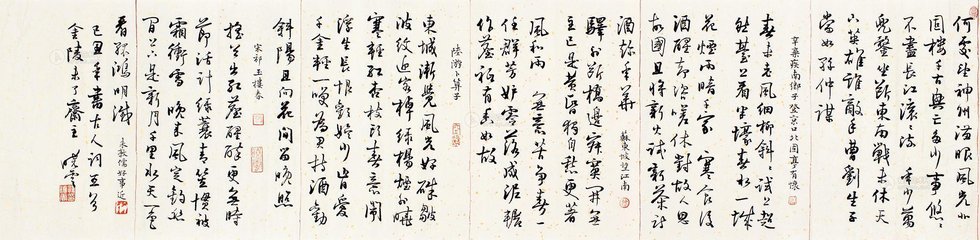 何處望神州滿眼風光北
固樓千古興亡多少事悠〻
不盡長江滾〻流 年少萬
兜鍪坐斷東南戰未休天
下英雄誰敵手曹劉生子
當如孫仲謀
辛棄疾南鄉子登京口北固亭有懷
春未老風細柳斜〻試上超
然臺上看半壕春水一城
花煙雨暗千家 寒食後
酒醒卻咨嗟休對故人思
故國且將新火試新茶詩
酒趁年華
蘇東坡望江南
驛外斷橋邊寂寞開無
主已是黃昏獨自愁更著
風和雨 無意苦爭春一
任群芳妒零落成泥輾
作塵祇有香如故
陸游卜算子
東城漸覺風光好縠皺
波紋迎客棹綠楊煙外曉
寒輕紅杏枝頭春意鬧
浮生長恨歡娛少肯愛
千金輕一笑為君持酒勸
斜陽且向花間留晚照
宋祁玉樓春
搖首出紅塵醒醉更無時
節活計綠蓑青笠慣被
霜衝雪 晚來風定釣絲
閒上下是新月千里水天一色
看孤鴻明滅 朱敦儒好事近
己丑年書古人詞五首
金陵去了齋主 曉雲